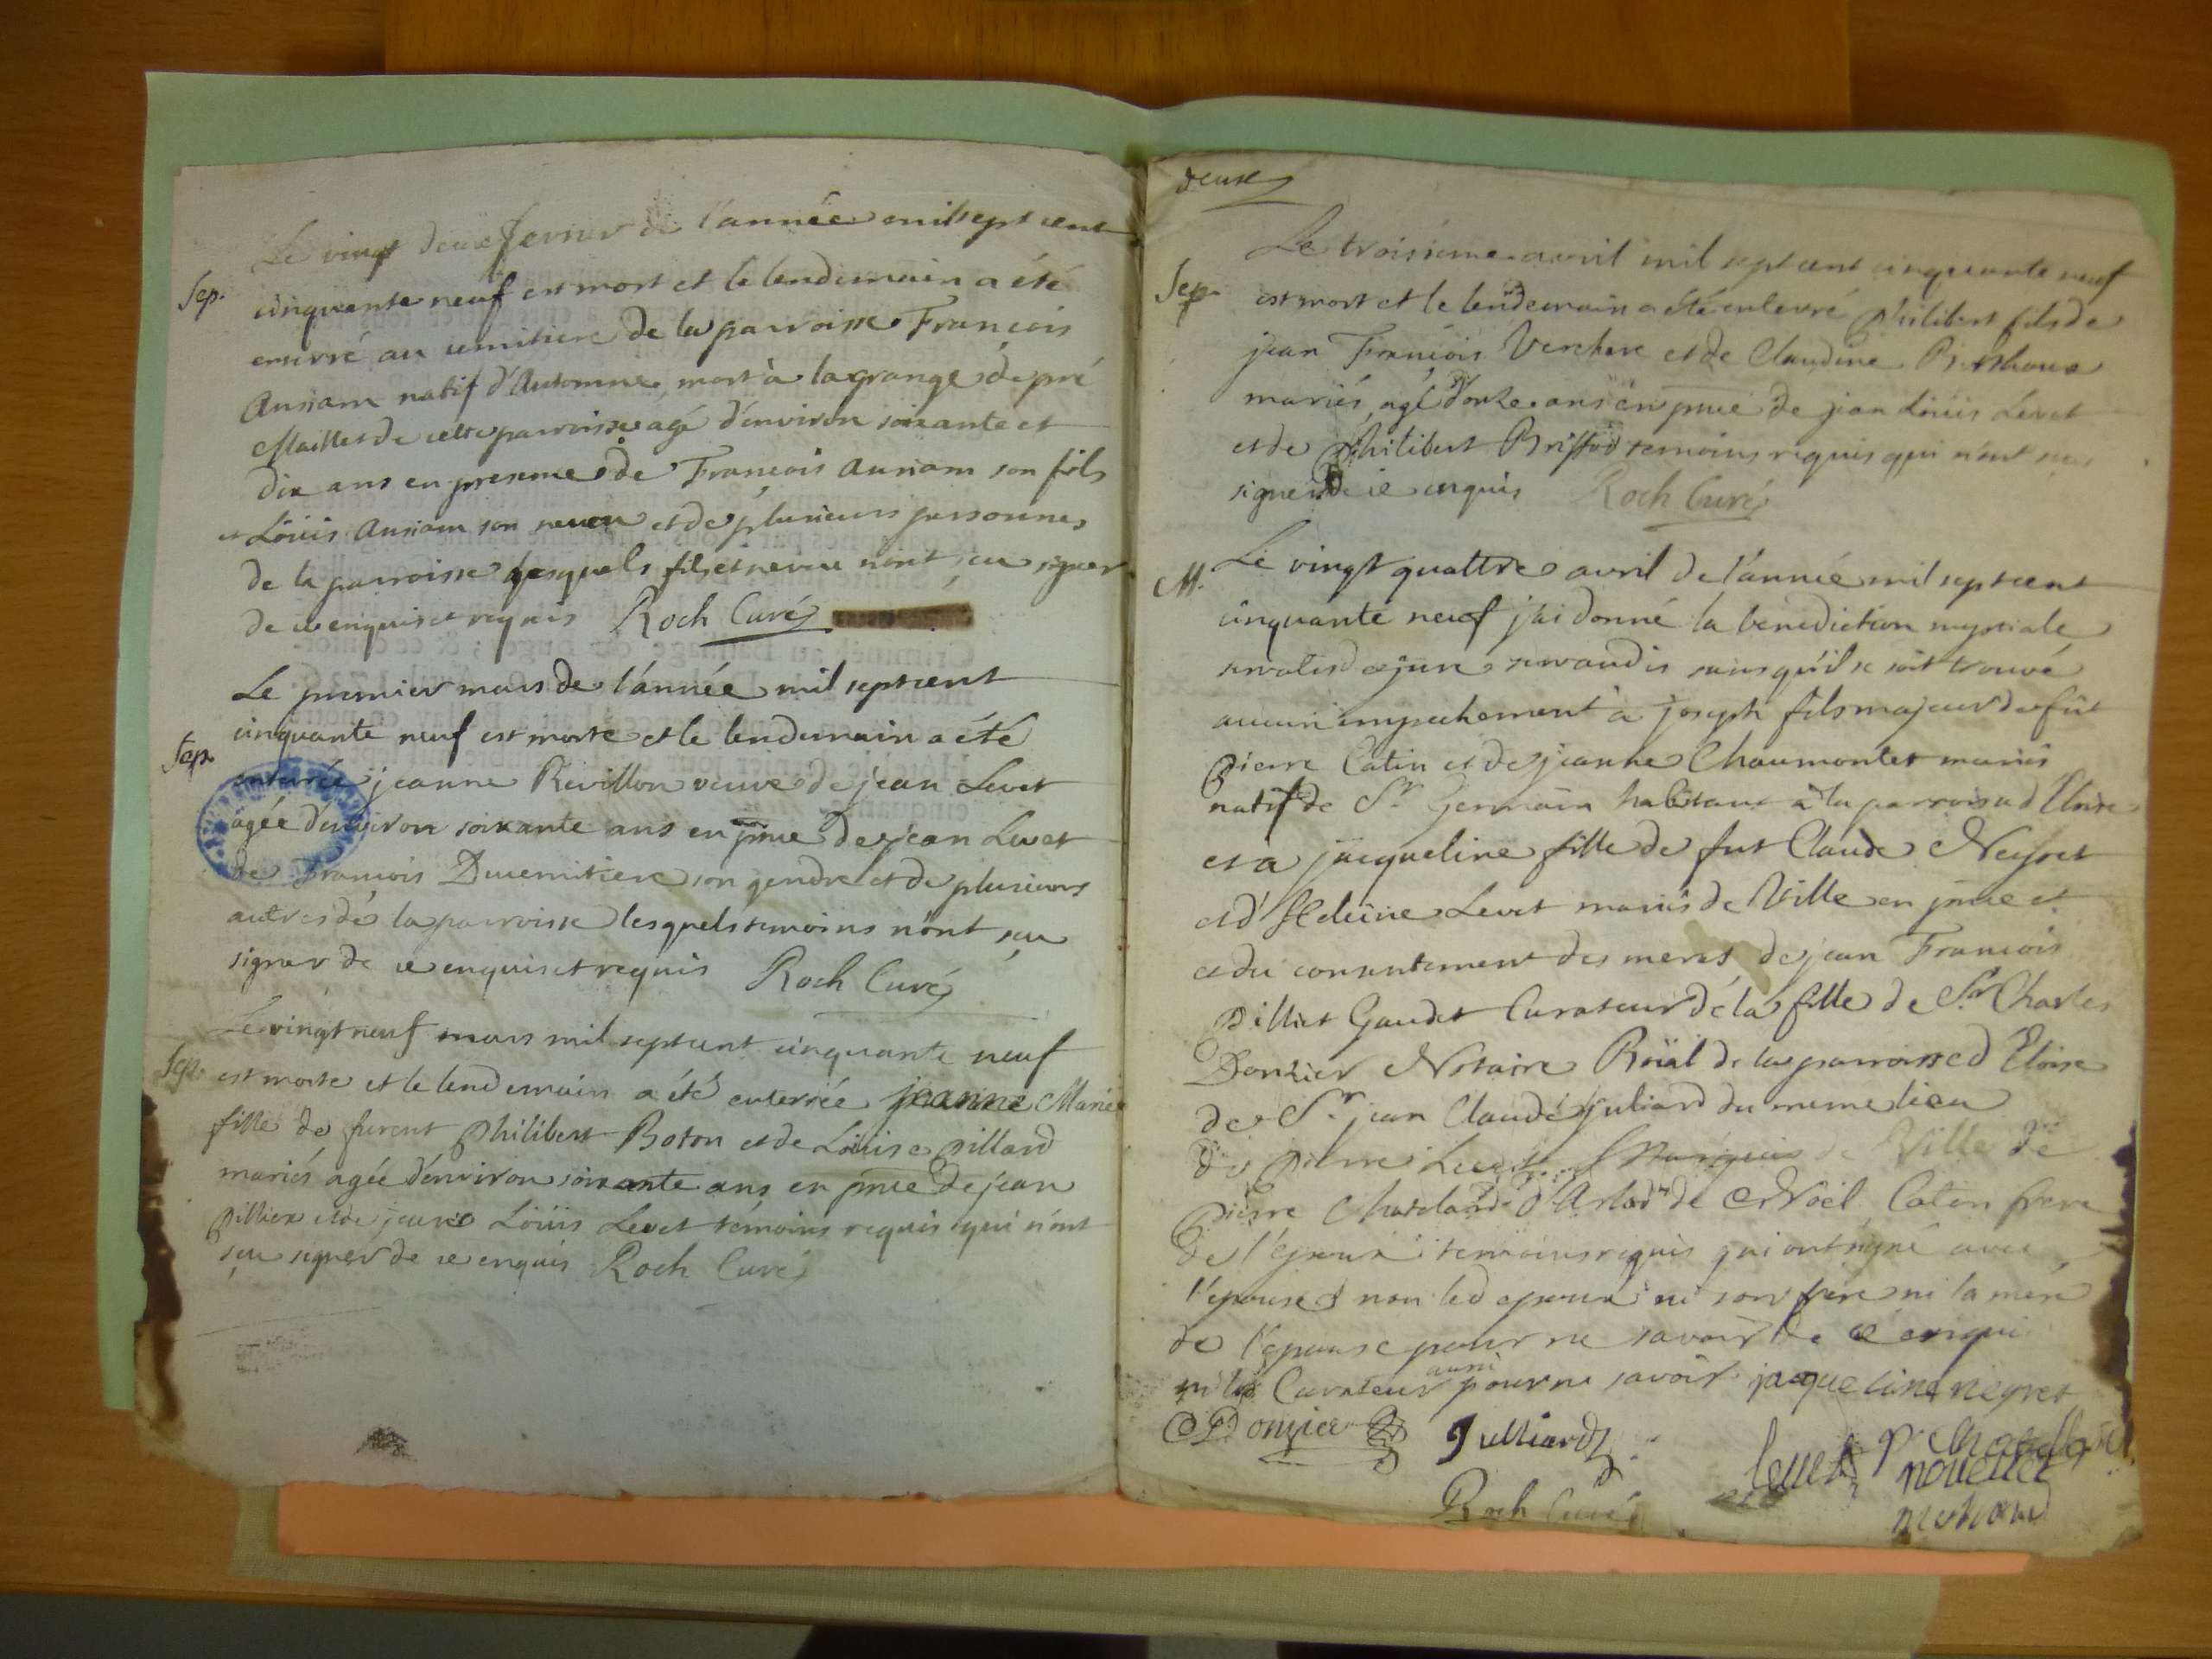 Le vingt deux fevrier de l'année mil sept cent
Sep. cinquante neuf est mort et le lendemain a été
enterré au cemitiere de la parroisse François
Ansiam natif d'Automne, mort à la grange de pré
Maillet de cette parroisse agé d'environ soixante et
dix ans en presence de François Ansiam son fils
et Löüis Ansiam son neveu et de plusieurs personnes
de la parroisse lesquels fils et neveu n'ont sçu signer
de ce enquis et requis Roch Curé
Le premier mars de l'année mil sept cent
Sep. cinquante neuf est morte et le lendemain a été
enterrée jeanne Révillon veuve de jean Levet
agée d'environ soixante ans en pnce de jean Levet
de François Ducemitiere son gendre et de plusieurs
autres de la parroisse lesquels temoins n'ont sçu
signer de ce enquis et requis Roch Curé
Le vingt neuf mars mil sept cent cinquante neuf
Sep. est morte et le lendemain a été enterrée jeanne Marie
fille de furent Philibert Boton et de Löuise Pillard
mariés agée d'environ soixante ans en pnce de jean
Pillier et de jean Löüis Levet témoins requis qui n'ont
sçu signer de ce enquis Roch Curé
deux
Le troisieme avril mil sept cent cinquante neuf
Sep. est mort et le lendemain a été enterré Philibert fils de
jean François Verchere et de Claudine
mariés, agé d'onze ans en pnce de jean Löüis Levet
et de Philibert temoins requis qui n'ont sçu
signer de ce enquis Roch Curé
M. Le vingt quattre avril de l'année mil sept cent
cinquante neuf j'ai donné la benediction nuptiale
servatis de jure servandis sans qu'il se soit trouvé
aucun empechement à joseph fils majeur de fût
Pierre Catin et de jeanne Chaumontet mariés
natif de St Germain habitant à la parroisse d'Eloise
et a jacqueline fille de fut Claude Neyret
et d'Heleine Levet mariés de Ville en pnce et
et du consentement des meres de jean François
Pillict Gaudet Curateur dé la fille de Sr Charles
Donzier Notaire Roïal de la parroisse d'Eloise
de Sr jean Claude juliard du meme lieu
de Pierre de Ville de
Pierre de et Noël Catin frere
de l'epoux temoins requis qui ont signé avec
l'epouse non led epoux ni son frere ni la mere
de l'epouse pour ne savoir de ce enqui
ni le Curateur aussi pour ne savoir jacqueline neyret
Donzier Julliard
levet
Roch Curé